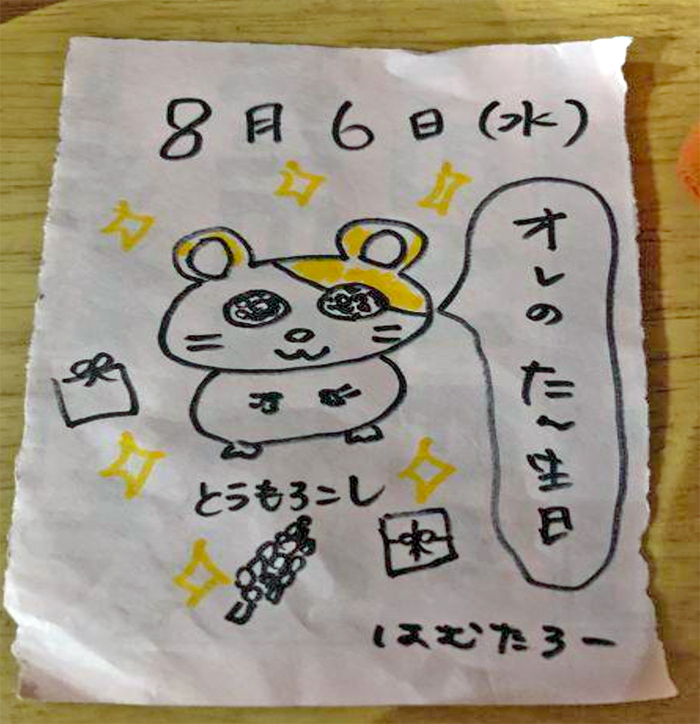 8月6日(水)
オレの た〜生日
とうもろこし
はむたろー